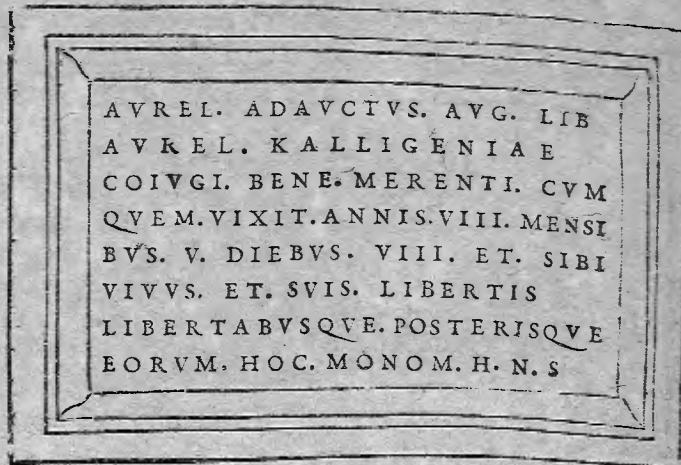 AVREL. ADAVCTVS. AVG. LIB
AVREL. KALLIGENIAE
COIVGI. BENE. MERENTI. CVM
QVEM. VIXIT. ANNIS. VIII. MENSI
BVS. V. DIEBVS. VIII. ET. SIBI
VIVVS. ET. SVIS. LIBERTIS
LIBERTABVSQVE. POSTERISQVE
EORVM, HOC. MONOM. H. N. S